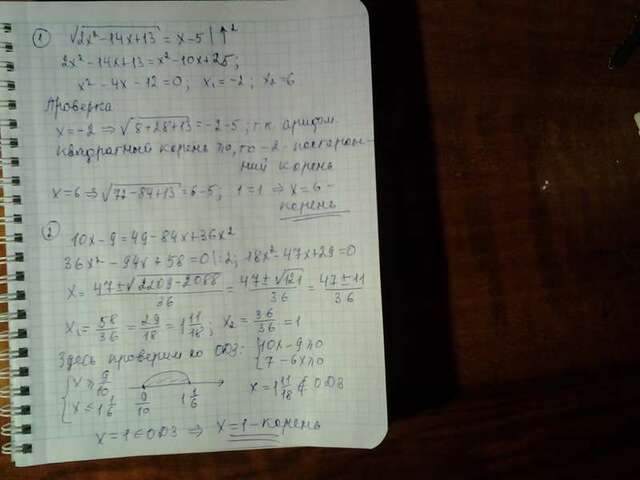 ① √2x²-14x+13 = x-5 |↑²
2x²-14x+13=x²-10x+25;
x²-4x-12=0; x₁=-2; x₂=6
Проверка
x=-2 ⇒ √8+28+13=-2-5; т.к. арифм.
квадратный корень ≥0, то -2 - посторон-
ний корень
x=6 ⇒ √72-84+13=6-5; 1=1 ⇒ x=6-
корень
② 10x-9=49-84x+36x²
36x²-94x+58=0|:2; 18x²-47x+29=0
x= 47±√2209-2088/36 = 47±√121/36 = 47±11/36
x₁= 58/36 = 29/18 = 1 11/18; x₂= 36/36 = 1
Здесь проверим по ОДЗ: {10x-9≥0
7-6x≥0
{x≥ 9/10
x≤1 1/6
9/10 1 1/6
x=1 11/18 ∉ ОДЗ
x=1∈ОДЗ ⇒ x=1-корень